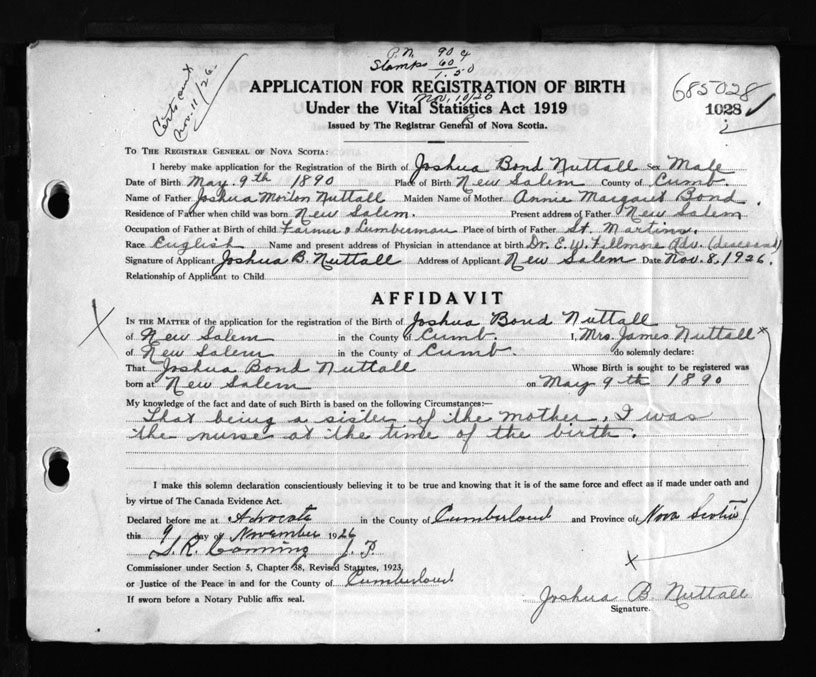 P.N. 90¢
Stamps 60
1.50
Nov. 10/26
Certs sent
Nov. 11/26
685028
APPLICATION FOR REGISTRATION OF BIRTH
1028
2
Under the Vital Statistics Act 1919
Issued by The Registrar General of Nova Scotia.
To The Registrar General of Nova Scotia:
I hereby make application for the Registration of the Birth of Joshua Bond Nuttall Sex Male
Date of Birth May 9th 1890 Place of Birth New Salem County of Cumb.
Name of Father Joshua Nuttall Maiden Name of Mother Annie Margaret Bond
Residence of Father when child was born New Salem. Present address of Father New Salem
Occupation of Father at Birth of child Farmer & Lumberman Place of birth of Father St. Martins.
Race English Name and present address of Physician in attendance at birth Dr. E. W. Fillmore Adv. (deceased)
Signature of Applicant Joshua B. Nuttall Address of Applicant New Salem Date Nov. 8, 1926.
Relationship of Applicant to Child
AFFIDAVIT
In the Matter of the application for the registration of the Birth of Joshua Bond Nuttall
of New Salem in the County of Cumb. I, Mrs. James Nuttall x
of New Salem in the County of Cumb. do solemnly declare:
That Joshua Bond Nuttall Whose Birth is sought to be registered was
born at New Salem on May 9th 1890
My knowledge of the fact and date of such Birth is based on the following Circumstances:—
That being a sister of the mother, I was
the nurse at the time of the birth.
I make this solemn declaration conscientiously believing it to be true and knowing that it is of the same force and effect as if made under oath and
by virtue of The Canada Evidence Act.
Declared before me at Advocate in the County of Cumberland and Province of Nova Scotia
this 9 day of November 1926
S. R. Canning J. P.
Commissioner under Section 5, Chapter 38, Revised Statutes, 1923,
or Justice of the Peace in and for the County of Cumberland
If sworn before a Notary Public affix seal.
x
Joshua B. Nuttall
Signature.